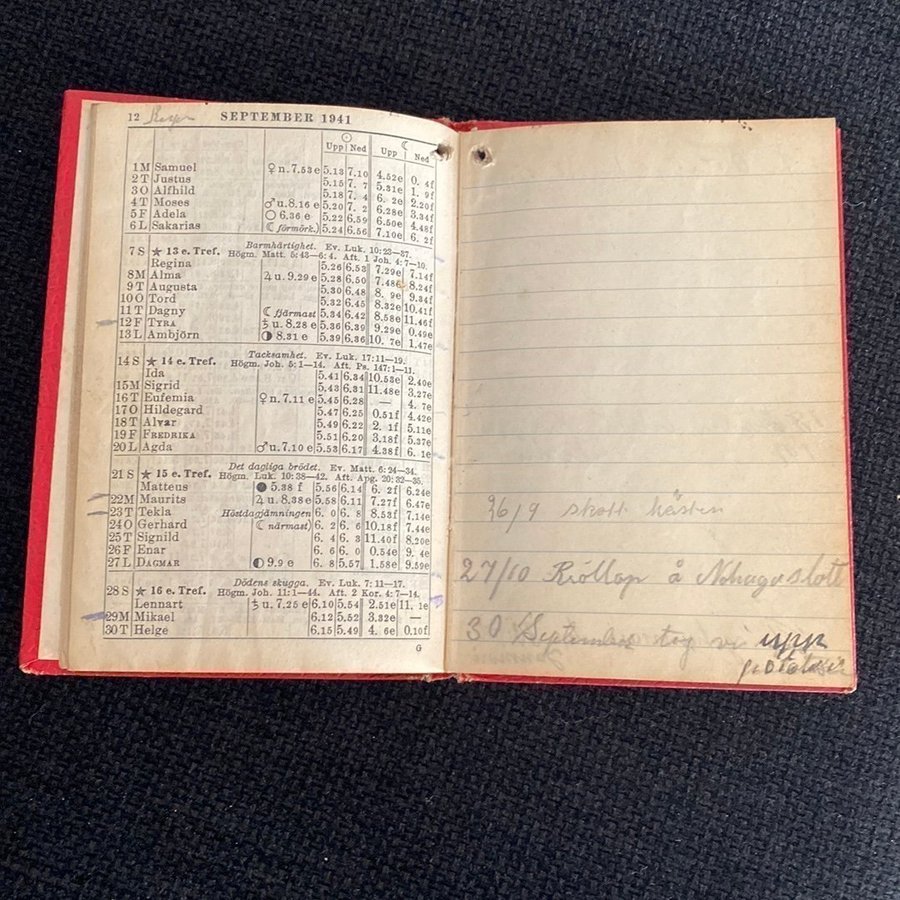 12 SEPTEMBER 1941
☉ ☾
Upp Ned Upp Ned
1 M Samuel ♀ n. 7.53 e 5.13 7.10 4.52e 0. 4f
2 T Justus 5.15 7. 7 5.31e 1. 9f
3 O Alfhild 5.18 7. 4 6. 2e 2.20f
4 T Moses ♂ u. 8.16 e 5.20 7. 2 6.28e 3.34f
5 F Adela ○ 6.36 e 5.22 6.59 6.50e 4.48f
6 L Sakarias ☾ förmörk.) 5.24 6.56 7.10e 6. 2f
7 S ★ 13 e. Tref. Barmhärtighet. Ev. Luk. 10: 23—37.
Högm. Matt. 5: 43—6: 4. Aft. 1 Joh. 4: 7—10.
Regina 5.26 6.53 7.29e 7.14f
8 M Alma ♃ u. 9.29 e 5.28 6.50 7.48e 8.24f
9 T Augusta 5.30 6.48 8. 9e 9.34f
10 O Tord 5.32 6.45 8.32e 10.41f
11 T Dagny ☾ fjärmast 5.34 6.42 8.58e 11.46f
12 F TYRA ♄ u. 8.28 e 5.36 6.39 9.29e 0.49e
13 L Ambjörn ◑ 8.31 e 5.39 6.36 10. 7e 1.47e
14 S ★ 14 e. Tref. Tacksamhet. Ev. Luk. 17: 11—19.
Högm. Joh. 5: 1—14. Aft. Ps. 147: 1—11.
Ida 5.41 6.34 10.53e 2.40e
15 M Sigrid 5.43 6.31 11.48e 3.27e
16 T Eufemia ♀ n. 7.11 e 5.45 6.28 — 4. 7e
17 O Hildegard 5.47 6.25 0.51f 4.42e
18 T Alvar 5.49 6.22 2. 1f 5.11e
19 F FREDRIKA 5.51 6.20 3.18f 5.37e
20 L Agda ♂ u. 7.10 e 5.53 6.17 4.38f 6. 1e
21 S ★ 15 e. Tref. Det dagliga brödet. Ev. Matt. 6: 24—34.
Högm. Luk. 10: 38—42. Aft. Apg. 20: 32—35.
Matteus ● 5.38 f 5.56 6.14 6. 2f 6.24e
22 M Maurits ♃ u. 8.38 e 5.58 6.11 7.27f 6.47e
23 T Tekla Höstdagjämningen 6. 0 6. 8 8.53f 7.14e
24 O Gerhard ☾ närmast) 6. 2 6. 6 10.18f 7.44e
25 T Signild 6. 4 6. 3 11.40f 8.20e
26 F Enar 6. 6 6. 0 0.54e 9. 4e
27 L DAGMAR ◐ 9.9 e 6. 8 5.57 1.58e 9.59e
28 S ★ 16 e. Tref. Dödens skugga. Ev. Luk. 7: 11—17.
Högm. Joh. 11: 1—44. Aft. 2 Kor. 4: 7—14.
Lennart ♄ u. 7.25 e 6.10 5.54 2.51e 11. 1e
29 M Mikael 6.12 5.52 3.32e —
30 T Helge 6.15 5.49 4. 6e 0.10f
G
26/9
27/10 å
30 September tog vi upp
potatisen